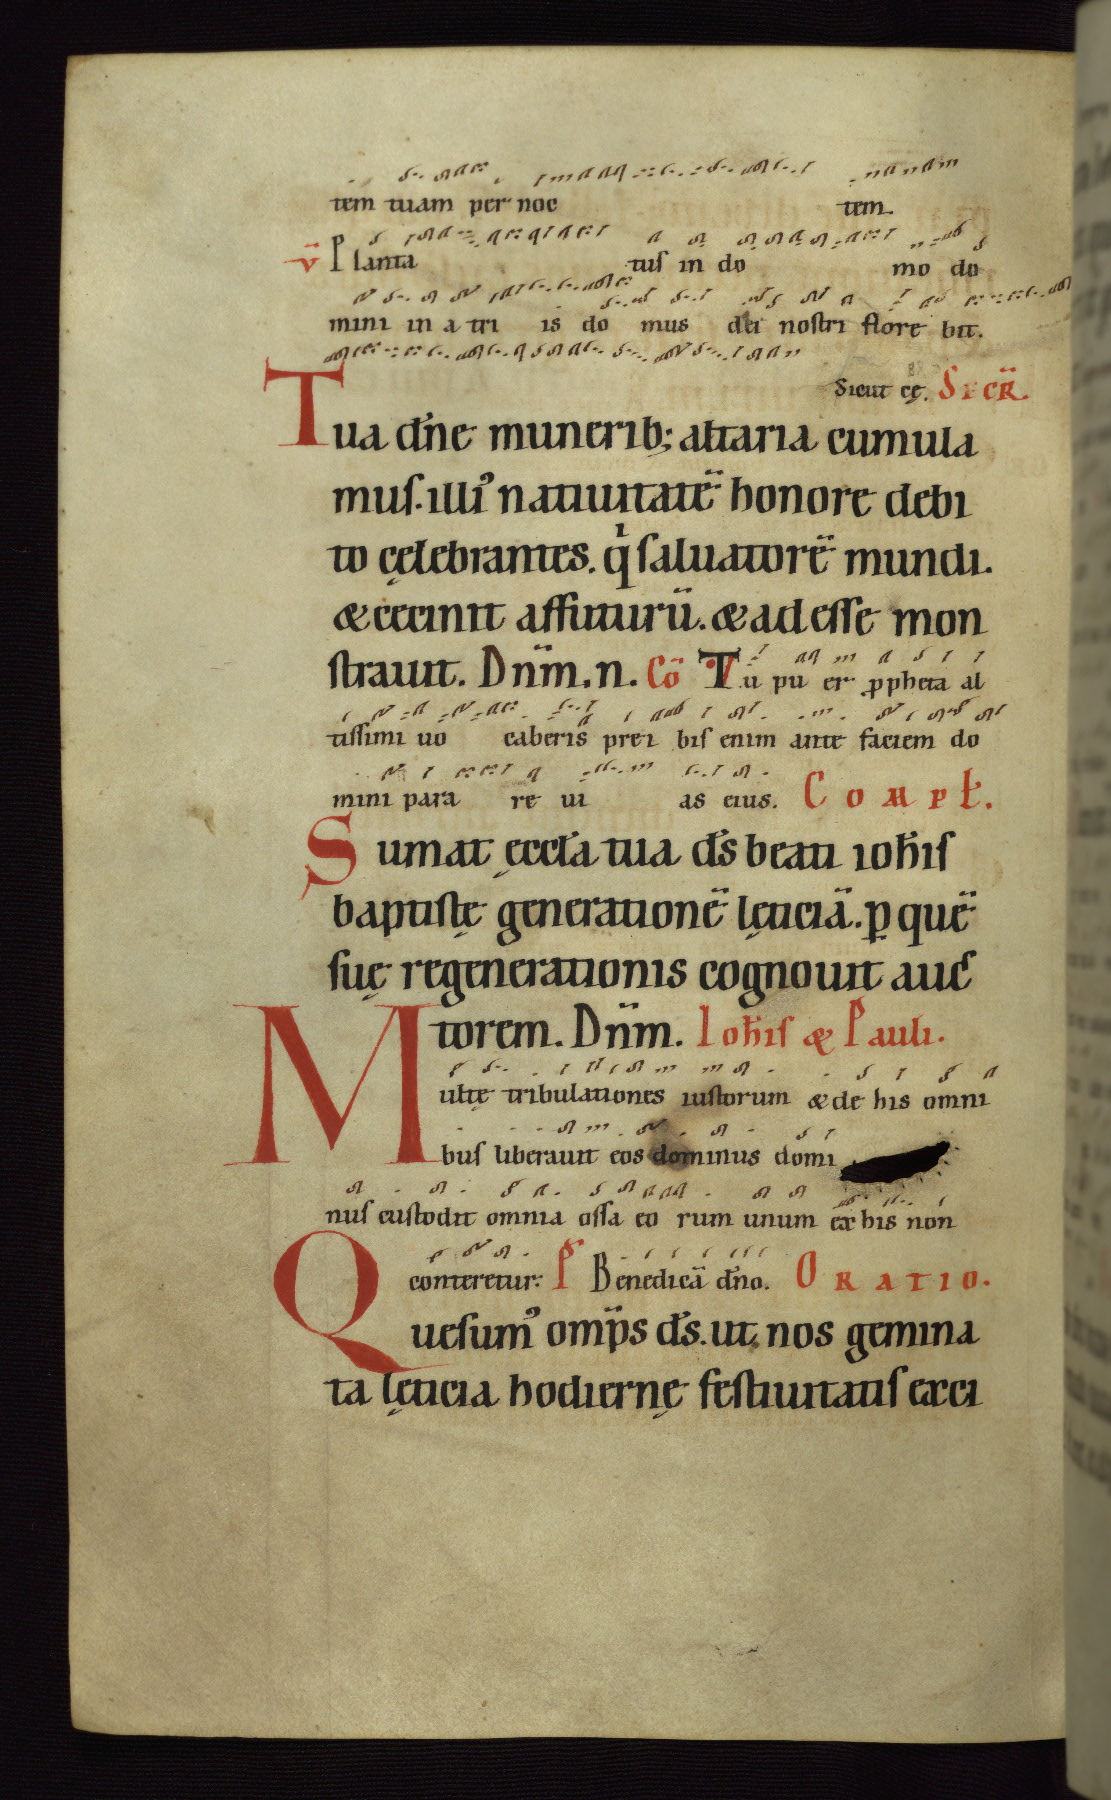 tem tuam per noc tem.
v̄ Planta tus in do mo do
mini in a tri is do mus dei nostri flore bit.
Sicut cę. SECR̄
Tua dn̄e munerib; altaria cumula
mus. illiꝰ natiuitatē honore debi
to cęlebrantes. qͥ saluatorē mundi.
& cecinit affuturū. & adesse mon
strauit. Dn̄m. n. Cō Tu pu er ꝓpheta al
tissimi uo caberis prei bis enim ante faciem do
mini para re ui as eius. COMPł.
Sumat ęccła tua ds̄ beati ioħis
baptistę generationē lęticiā. ꝑ quē
suę regenerationis cognouit auc
torem. Dn̄m. Ioħis & Pauli.
Multę tribulationes iustorum & de his omni
bus liberauit eos dominus domi
nus custodit omnia ossa eo rum unum ex his non
conteretur: P̄s Benedicā dn̄o. ORATIO.
Quesumꝰ omp̄s ds̄. ut nos gemina
ta lęticia hodiernę festiuitatis exci